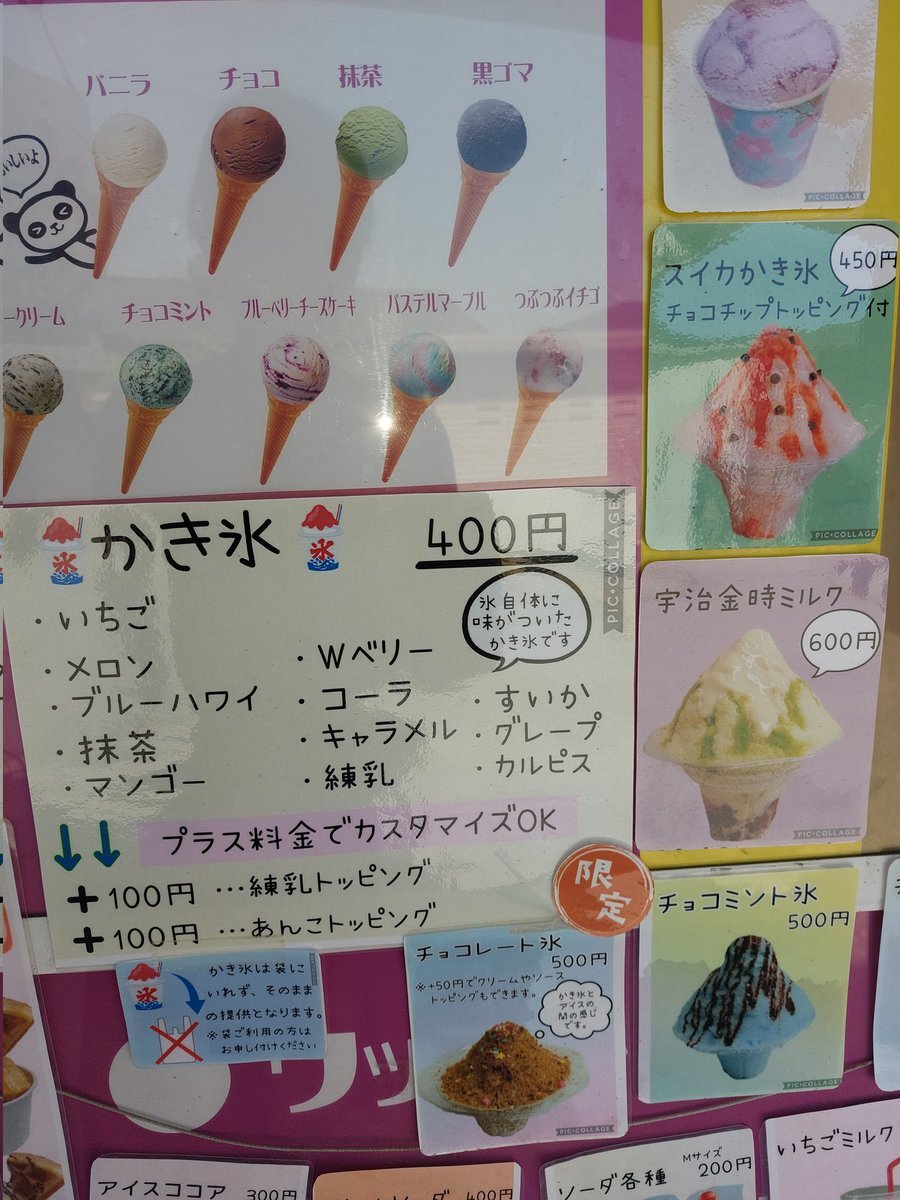 バニラ
チョコ
抹茶
黒ゴマ
いしいよ
ークリーム
チョコミント
ブルーベリーチーズケーキ
パステルマーブル
つぶつぶイチゴ
PIC•COLLAGE
スイカかき氷
450円
チョコチップトッピング付
PIC•COLLAGE
宇治金時ミルク
600円
PIC•COLLAGE
氷
かき氷
氷
400円
PIC•COLLAGE
氷自体に
味がついた
かき氷です
・いちご
・メロン
・ブルーハワイ
・抹茶
・マンゴー
・Wベリー
・コーラ
・キャラメル
・練乳
・すいか
・グレープ
・カルピス
プラス料金でカスタマイズOK
+100円…練乳トッピング
+100円…あんこトッピング
限定
氷
かき氷は袋に
いれず、そのまま
の提供となります。
※袋ご利用の方は
お申し付けください
チョコレート氷
500円
※+50円でクリームやソース
トッピングもできます。
かき氷と
アイスの
間の感じ
です。
PIC•COLLAGE
チョコミント氷
500円
PIC•COLLAGE
アイスココア 300円
400円
ソーダ各種
Mサイズ
200円
いちごミルク